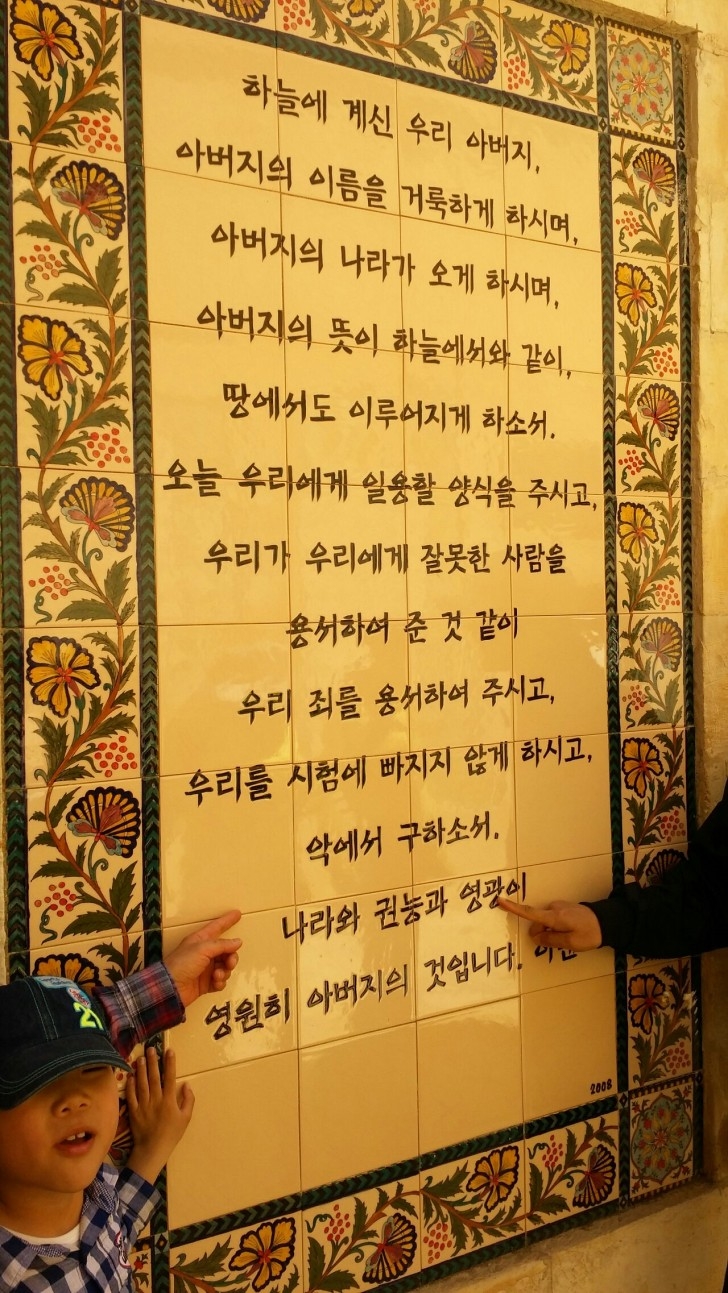 하늘에 계신 우리 아버지,
아버지의 이름을 거룩하게 하시며,
아버지의 나라가 오게 하시며,
아버지의 뜻이 하늘에서와 같이,
땅에서도 이루어지게 하소서.
오늘 우리에게 일용할 양식을 주시고,
우리가 우리에게 잘못한 사람을
용서하여 준 것 같이
우리 죄를 용서하여 주시고,
우리를 시험에 빠지지 않게 하시고,
악에서 구하소서.
나라와 권능과 영광이
영원히 아버지의 것입니다.
2008